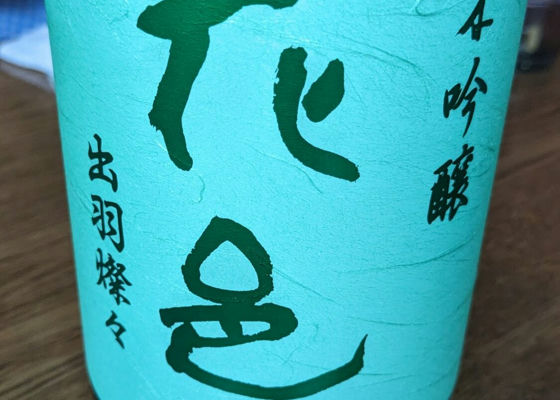 吟醸
花邑
出羽燦々